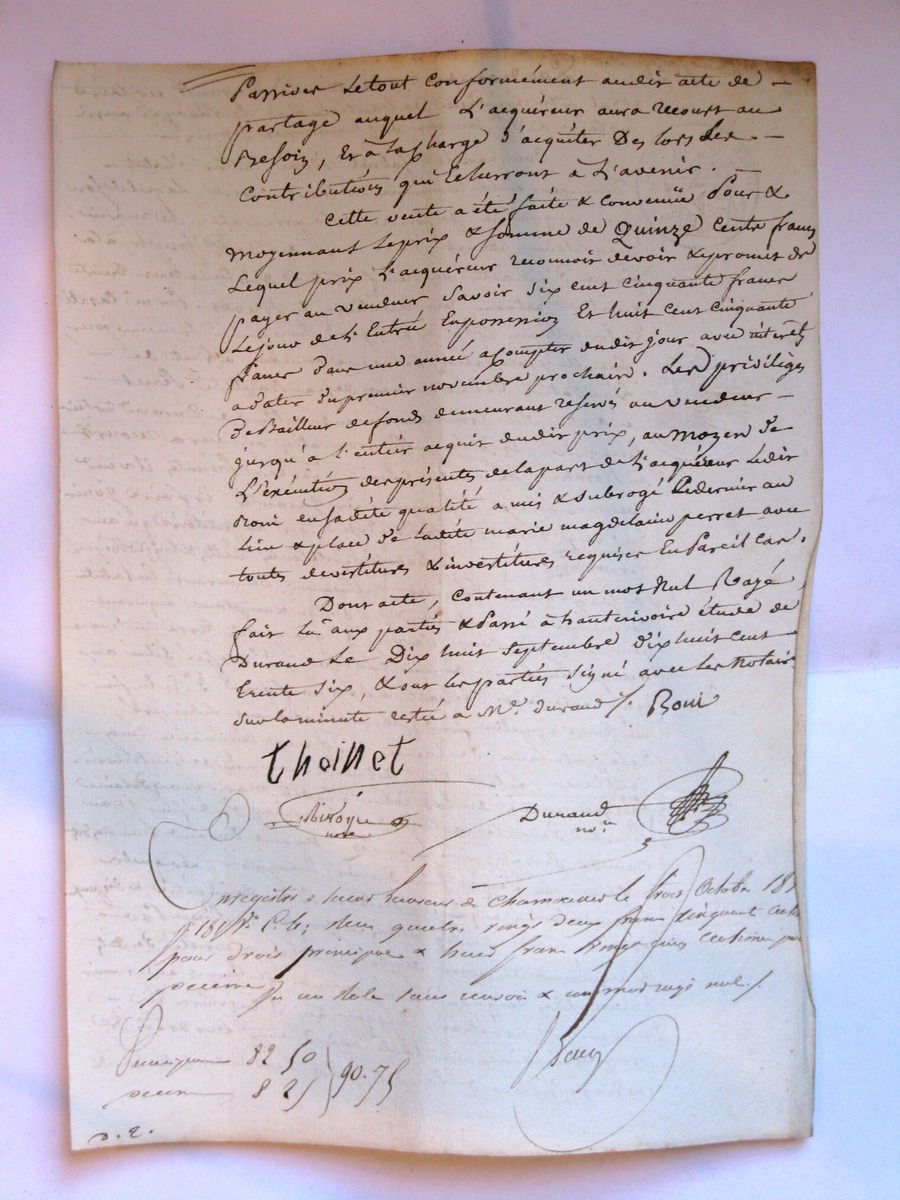 Passives Le tout conformément audit acte de —
partage auquel L'acquéreur aura recourt au
Besoin, Et à La charge d'acquiter Des lors Les —
Contributions qui Echerront à L'avenir. —
Cette vente a été faite & convenüe Pour &
moyennant Le prix & somme de Quinze Cents francs
Lequel prix L'acquéreur reconnoit devoir & promet de
payer au vendeur Savoir Six cent cinquante francs
Le jour de L'Entrée En possession Et huit cent cinquante
francs dans une année a Compter dudit jour avec intérêt
a dater du premier novembre prochain. Les privilèges
de Bailleur de fonds demeurant réservés au vendeur —
jusqu'à l'entier acquit dudit prix, au moyen de
L'éxécution des présentes de la part de L'acquéreur Ledit
Roni en sa dite qualité a mis & subrogé Ce dernier au
lieu & place de Ladite marie magdelaine perret avec
toutes devestitures & investitures requises En Pareil Cas.
Dont acte, contenant un mot Nul Rayé,
fait Lu aux parties & Passé à hauterivoire étude de
Durand Le Dix huit Septembre dix huit cent
trente six, & ont les parties signé avec Les Notaires
Sur la minute restée a Me. Durand /. Roni
thoinet
nore
Durand
nore
Enregistré a Saint Laurent de Chamousset le trois Octobre 18
quatre vingt deux francs cinquante cent
pour droit principal & huit francs vingt cinq centimes pour
décime Sur un role sans renvoi & un mot rayé nul /.
Principal 82 50
décime 8 25 } 90.75
D. 2.